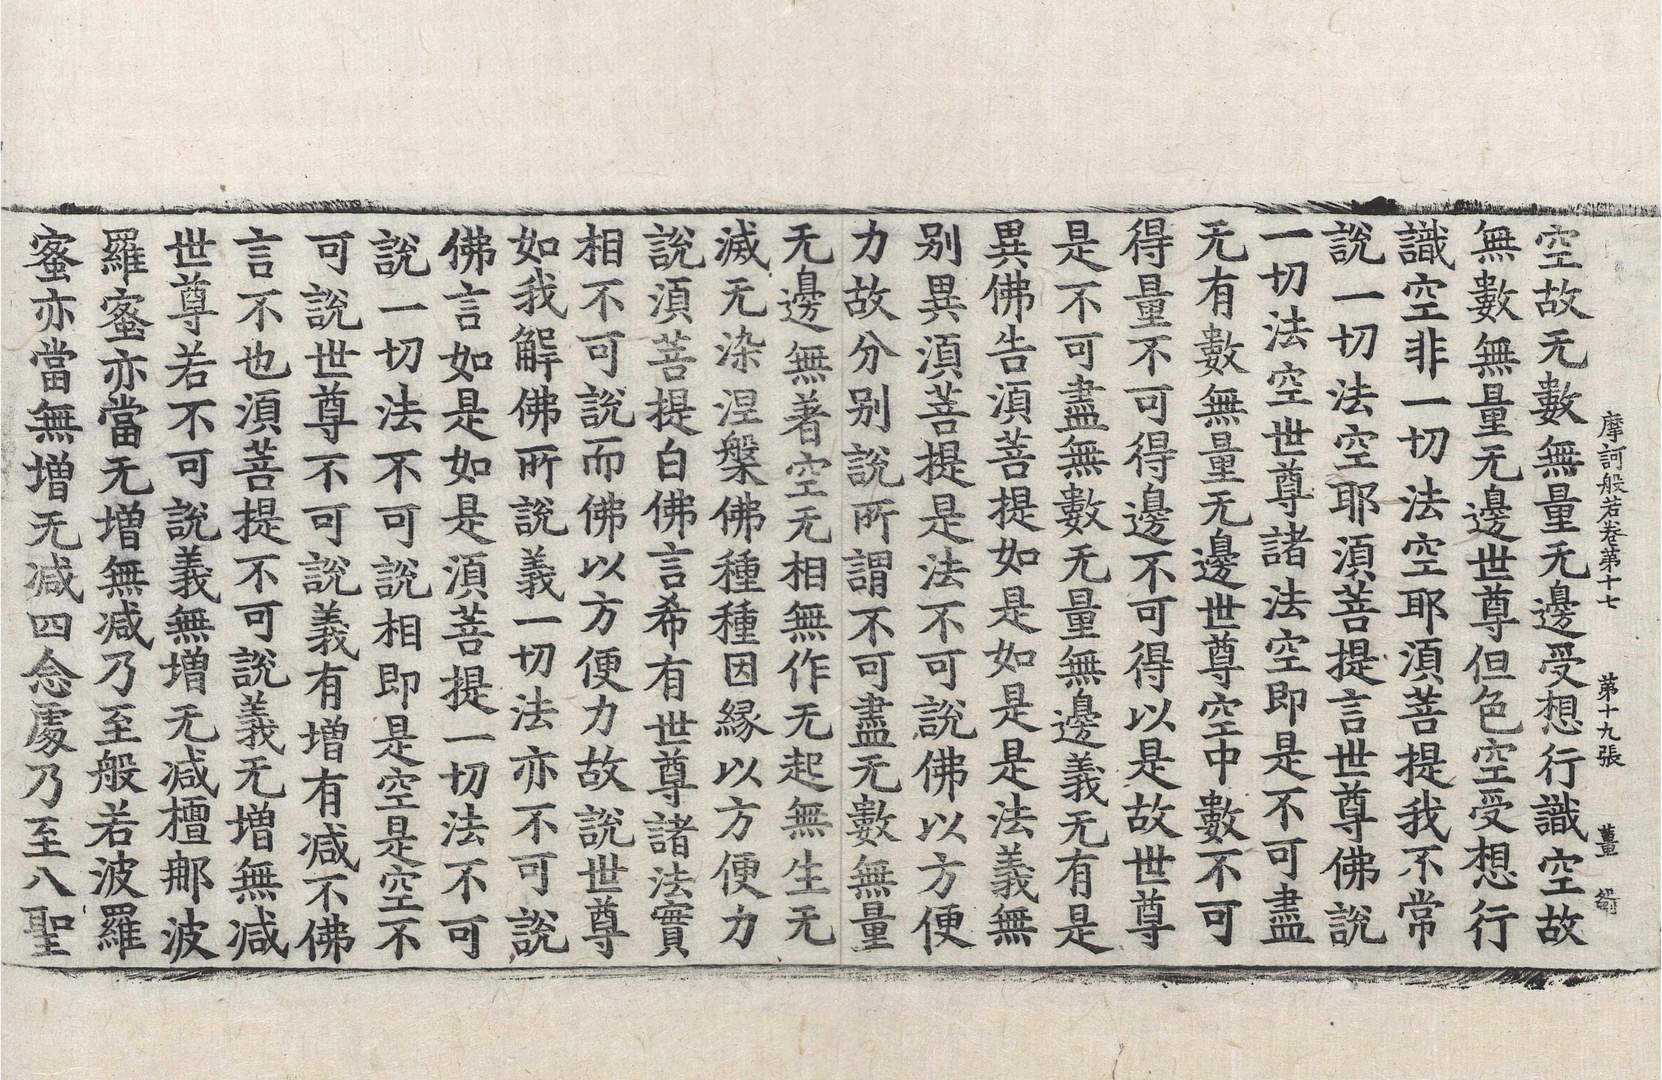 摩訶般若卷第十七 第十九張 董
空故无數無量无邊受想行識空故
無數無量无邊世尊但色空受想行
識空非一切法空耶須菩提我不常
說一切法空耶須菩提言世尊佛說
一切法空世尊諸法空即是不可盡
无有數無量无邊世尊空中數不可
得量不可得邊不可得以是故世尊
是不可盡無數无量無邊義无有是
異佛告須菩提如是如是是法義無
别異須菩提是法不可說佛以方便
力故分别說所謂不可盡无數無量
无邊無著空无相無作无起無生无
滅无染涅槃佛種種因緣以方便力
說須菩提白佛言希有世尊諸法實
相不可說而佛以方便力故說世尊
如我解佛所說義一切法亦不可說
佛言如是如是須菩提一切法不可
說一切法不可說相即是空是空不
可說世尊不可說義有增有减不佛
言不也須菩提不可說義无增無减
世尊若不可說義無增无减檀那波
羅蜜亦當无增無减乃至般若波羅
蜜亦當無增无减四念處乃至八聖